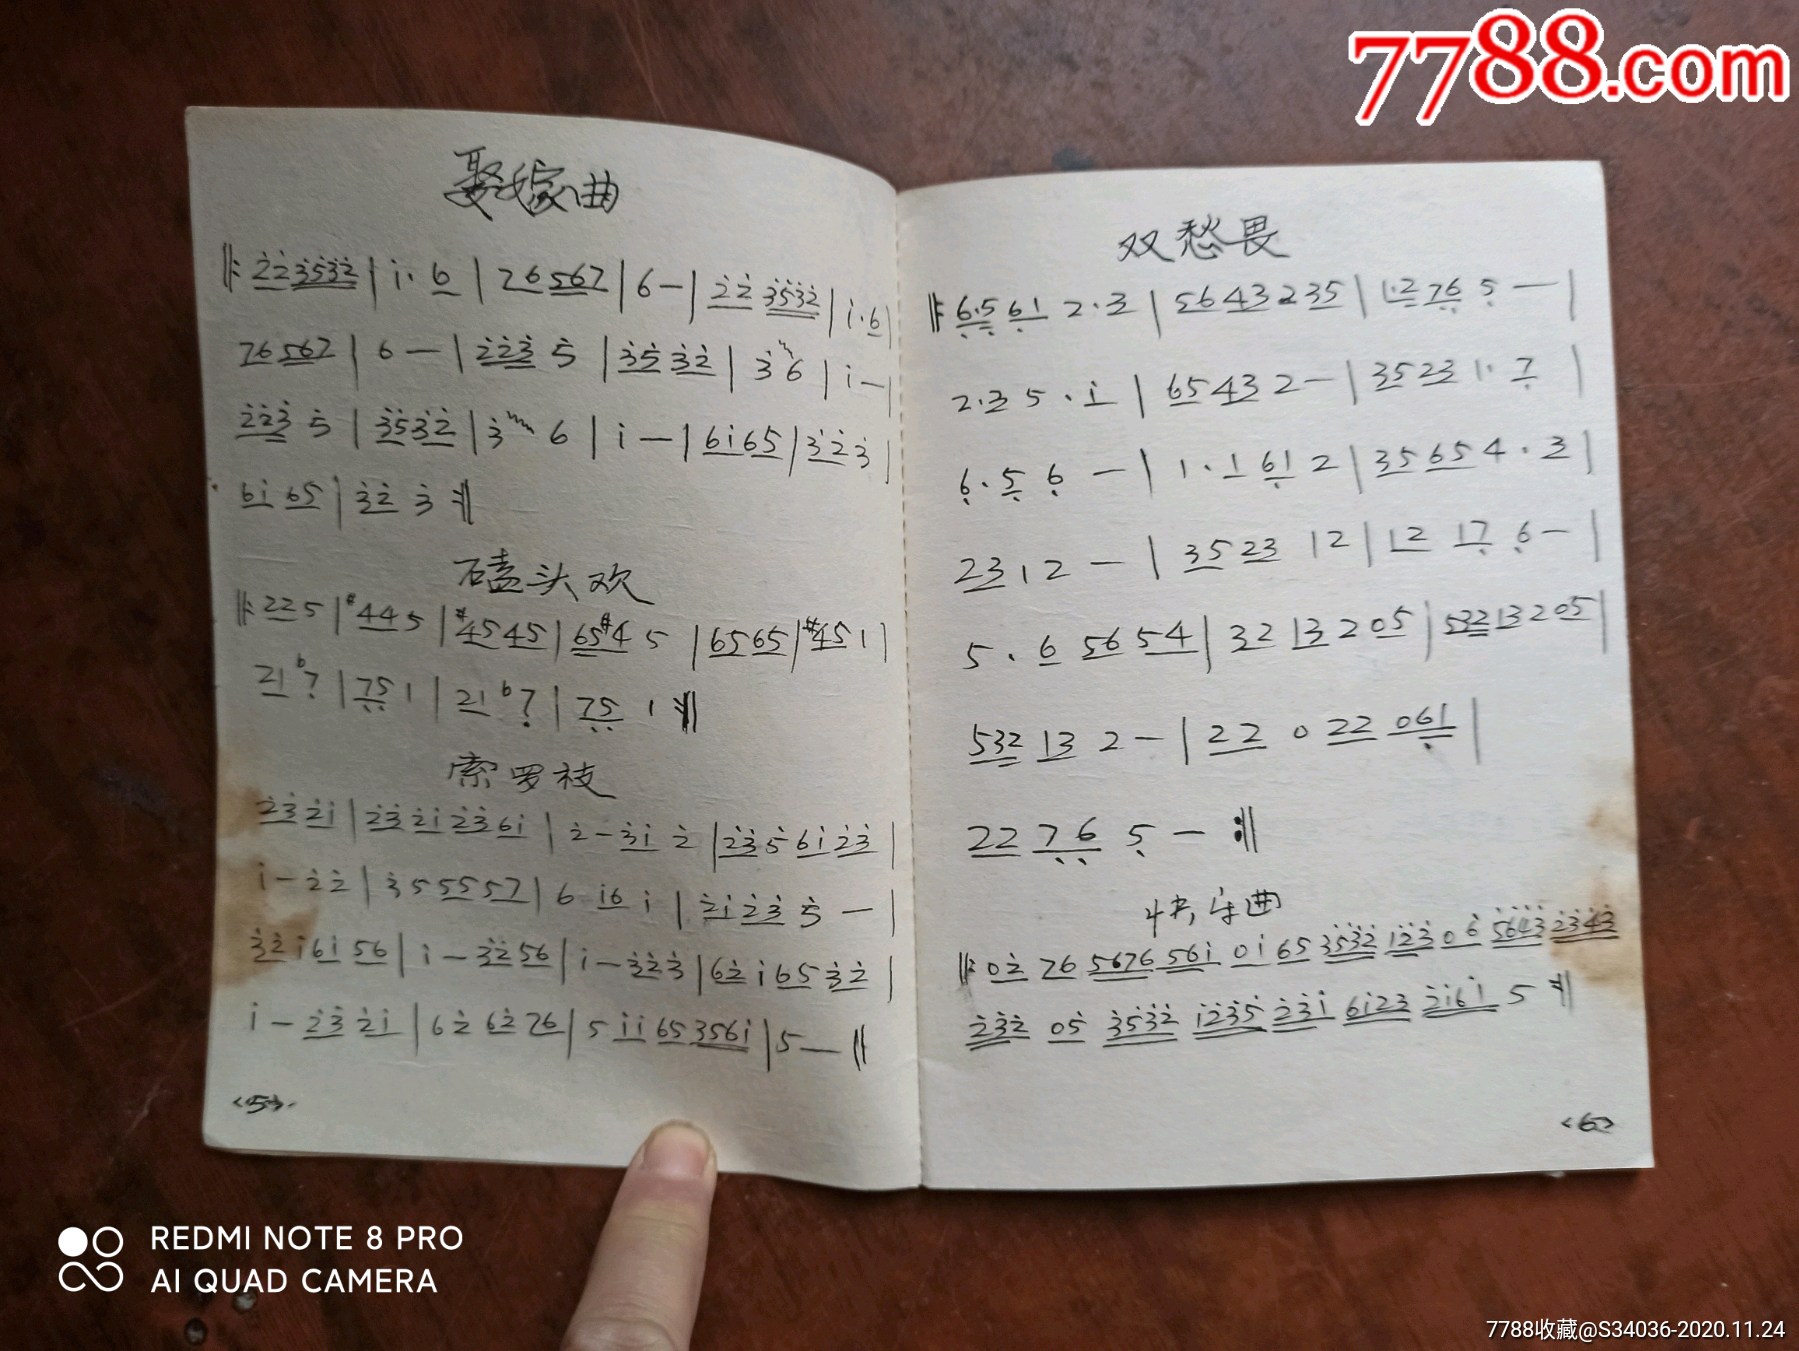 7788.com
娶嫁曲
‖: 2̇2̇3̇5̇3̇2̇ | i·6 | 76567 | 6— | 2̇2̇ 3̇5̇3̇2̇ | i·6 |
76567 | 6— | 2̇2̇3̇ 5̇ | 3̇5̇ 3̇2̇ | 3̇ 6 | i— |
2̇2̇3̇ 5̇ | 3̇5̇3̇2̇ | 3̇ 6 | i— | 6i65 | 3̇2̇3̇ |
6i 65 | 3̇2̇ 3̇ :‖
磕头欢
‖: 225 | #445 | #4545 | 65#4 5 | 6565 | #451 |
21 b7̣ | 7̣5̣ 1 | 21 b7̣ | 7̣5̣ 1 :‖
索罗枝
2̇3̇ 2̇i | 2̇3̇ 2̇i 2̇3̇ 6i | 2̇—3̇i 2̇ | 2̇3̇ 5̇ 6i 2̇3̇ |
i—2̇2̇ | 3̇5 5557 | 6 i6 i | 2̇i 2̇3̇ 5̇— |
3̇2̇ i6i 56 | i—3̇2̇56 | i—3̇2̇3̇ | 62̇ i 65 3̇2̇ |
i—2̇3̇ 2̇i | 62̇ 62̇ 76 | 5 ii 65 356i | 5—‖
<5>
双愁畏
‖: 6̣·5̣ 6̣1 2·3 | 5643 235 | 1·2 7̣6̣ 5̣— |
2·3 5·i | 6543 2— | 3523 1·7̣ |
6̣·5̣ 6̣— | 1·1 6̣1 2 | 3565 4·3 |
2312— | 3523 12 | 12 17̣ 6̣— |
5·6 56 54 | 32 13 2 05 | 532 13 2 05 |
532 13 2— | 22 0 22 06̣1 |
22 7̣6̣ 5̣— :‖
快乐曲
‖: 02̇ 76 5676 56i 0i 65 3̇5̇3̇2̇ i2̇3̇ 06̇ 5̇6̇4̇3̇ 2̇3̇4̇3̇
2̇3̇2̇ 05̇ 3̇5̇3̇2̇ i2̇3̇5̇ 2̇3̇i 6i23 2̇i6i 5 :‖
<6>
REDMI NOTE 8 PRO
AI QUAD CAMERA
7788收藏@S34036-2020.11.24